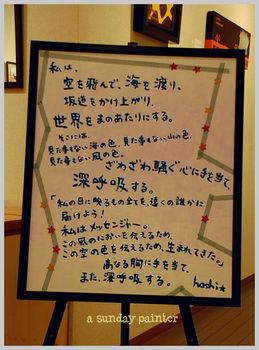 私は、
空を飛んで、海を渡り、
坂道をかけ上がり、
世界をまのあたりにする。
そこには、
見た事もない海の色、見た事もない山の色、
見た事もない風の色。
ざわざわ騒ぐ心に手を当て、
深呼吸する。
「私の目に映るもの全てを、遠くの誰かに
届けよう！
私はメッセンジャー。
この風のにおいを伝えるため、
この空の色を伝えるため、生まれてきた。」
高なる胸に手を当て、
また、深呼吸する。
hoshi★
a sunday painter